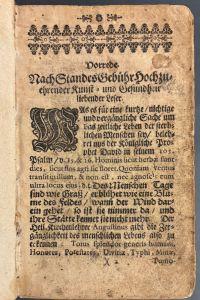 Vorrede.
Nach Standes Gebühr Hochzu-
ehrender Kunst- und Gesundheit
liebender Leser.
WAs es für eine kurtze / nichtige
und vergängliche Sache um
das zeitliche Leben der sterb-
lichen Menschen sey / beleh-
ret uns der Königliche Pro-
phet David in seinem 103.
Psalm / v. 15. & 16. Hominis sicut herba sunt
dies, sicut flos agri sic floret. Quoniam Ventus
transit super illum, & non est, nec agnoscet eum
ultra locus ejus. d. i. Des Menschen Tage
sind wie Graß / er blühet wie eine Blu-
me des Feldes / wann der Wind dar-
ein gehet / so ist sie nimmer da / und
ihre Stätte kennet sie nicht mehr. Der
Heil. Kirchenlehrer Augustinus gibt die Zer-
gänglichkeit des menschlichen Lebens also zu
erkennen: Totus splendor generis humani,
Honores, Potestates, Divitiæ, Typhi, Minæ,